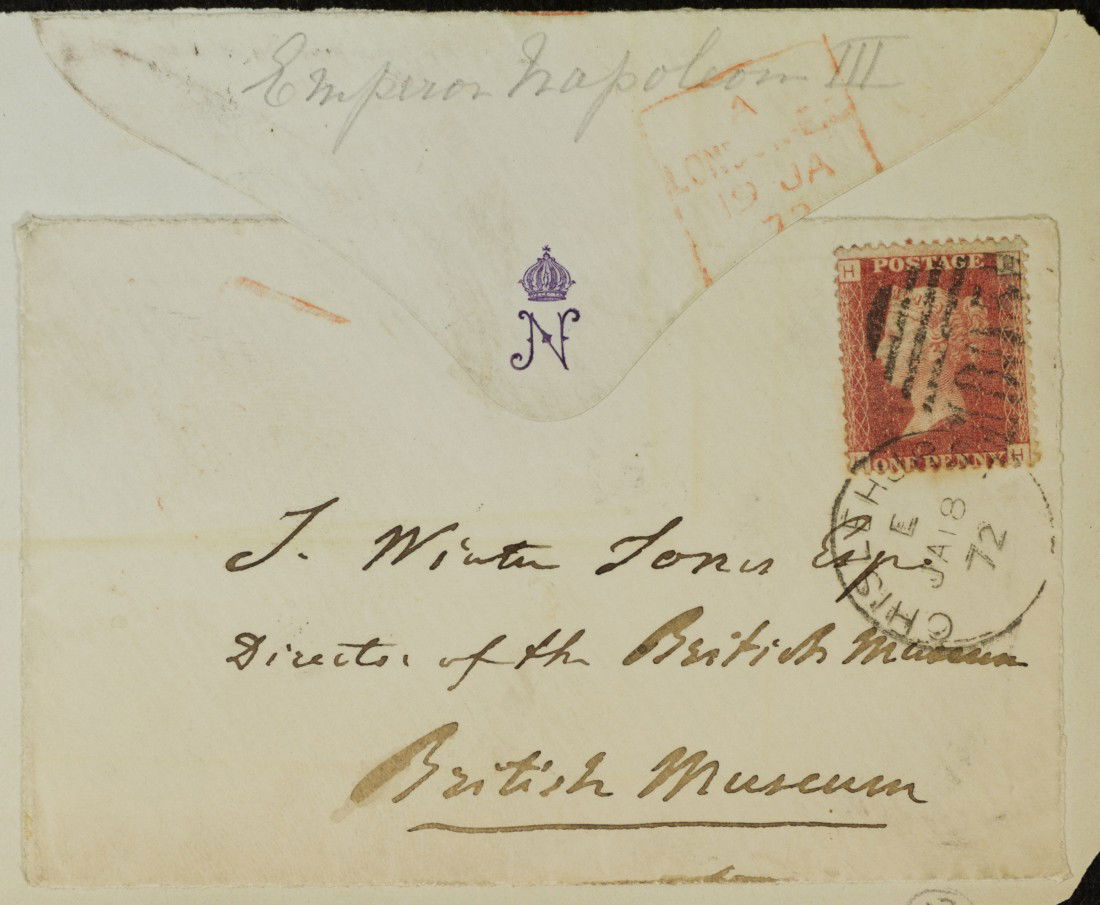 Emperor Napoleon III
A
LONDON
19 JA
72
N
H POSTAGE
H ONE PENNY H
J. Winter Jones Esqr.
Director of the British Museum
British Museum
CHISLEHU
E
JA 18
72